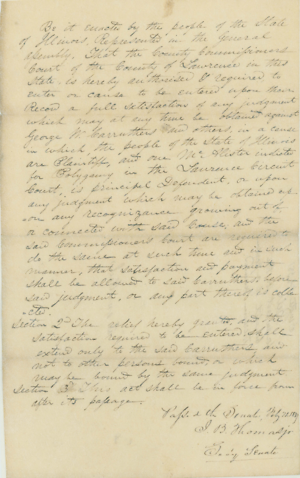 Be it enacted by the people of the State
of Illinois Represented in the General
Assembly, That the County Commissioners
Court of the County of Lawrence in this
State is hereby authorised & required to
enter or cause to be entered upon their
Record a full Satisfaction of any judgment
which may at any time be obtained against
George W. Carruthers and others, in a cause
in which the people of the State of Illinois
are Plaintiff, and one Mc
for Polygamy in the Lawrence Circuit
Court, is principal Defendant, or upon
any judgment which may be obtained up-
-on any recognizance growing out of
or connected with said Cause, and the
said Commissioners Court are required to
do the same at such time and in such
manner, that satisfaction and payment
shall be allowed to said Carruthers before
said judgment, or any part thereof is colle
cted.
Section 2d The relief hereby granted, and the
satisfaction required to be entered shall
extend only to the said Carruthers and
not to other persons bound or which
may be bound by the same judgment
Section 3d This act shall be in force from
after its passage.
Passed the Senate
J B Thomas jr
Secy Senate